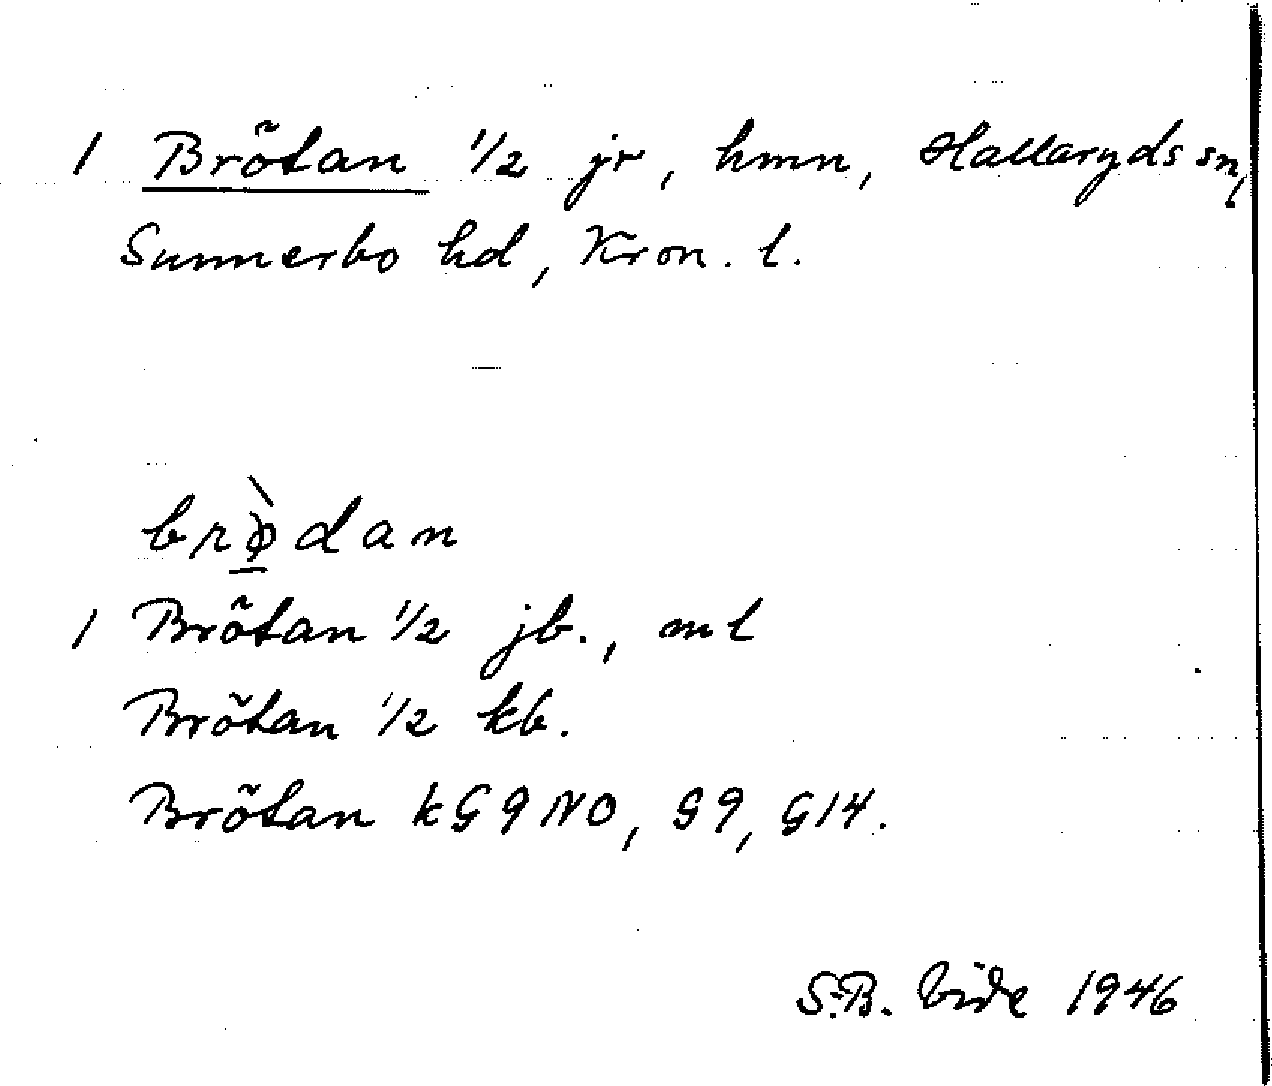 1 Brötan 1/2 jr, hmn, Hallaryds sn,
Sunnerbo hd, Kron. l.
brø̱̀dan
1 Brötan 1/2 jb., ml
Brötan 1/2 kb.
Brötan kG9NO, G9, G14.
S.-B. Vide 1946